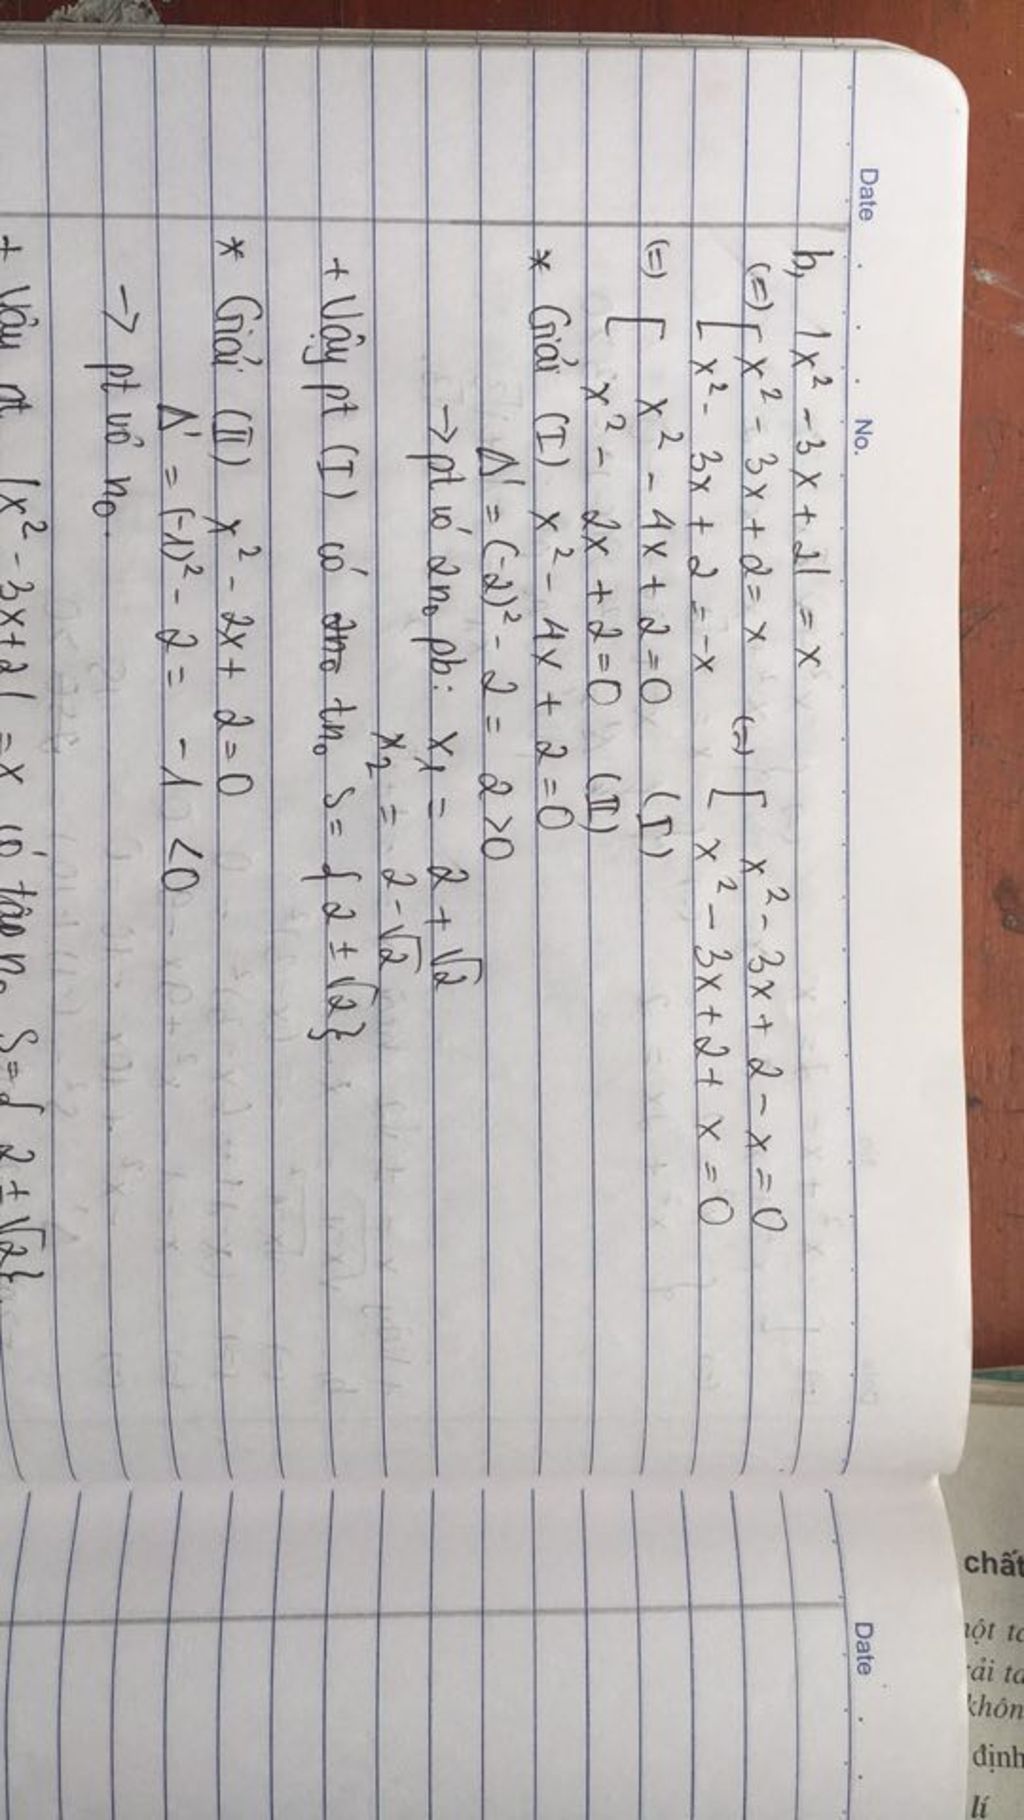 Date . . No.
b, |x² - 3x + 2| = x
(=) [ x² - 3x + 2 = x (=) [ x² - 3x + 2 - x = 0
x² - 3x + 2 = -x x² - 3x + 2 + x = 0
(=) [ x² - 4x + 2 = 0 (I)
x² - 2x + 2 = 0 (II)
* Giải (I) x² - 4x + 2 = 0
Δ' = (-2)² - 2 = 2 > 0
→ pt có 2n₀ pb: x₁ = 2 + √2
x₂ = 2 - √2
+ Vậy pt (I) có tn₀ S = { 2 ± √2}
* Giải (II) x² - 2x + 2 = 0
Δ' = (-1)² - 2 = -1 < 0
→ pt vô n₀.
+ Vậy pt |x² - 3x + 2| = x có tập n₀ S = { 2 ± √2}
Date
chất
một
khôn
định
lí